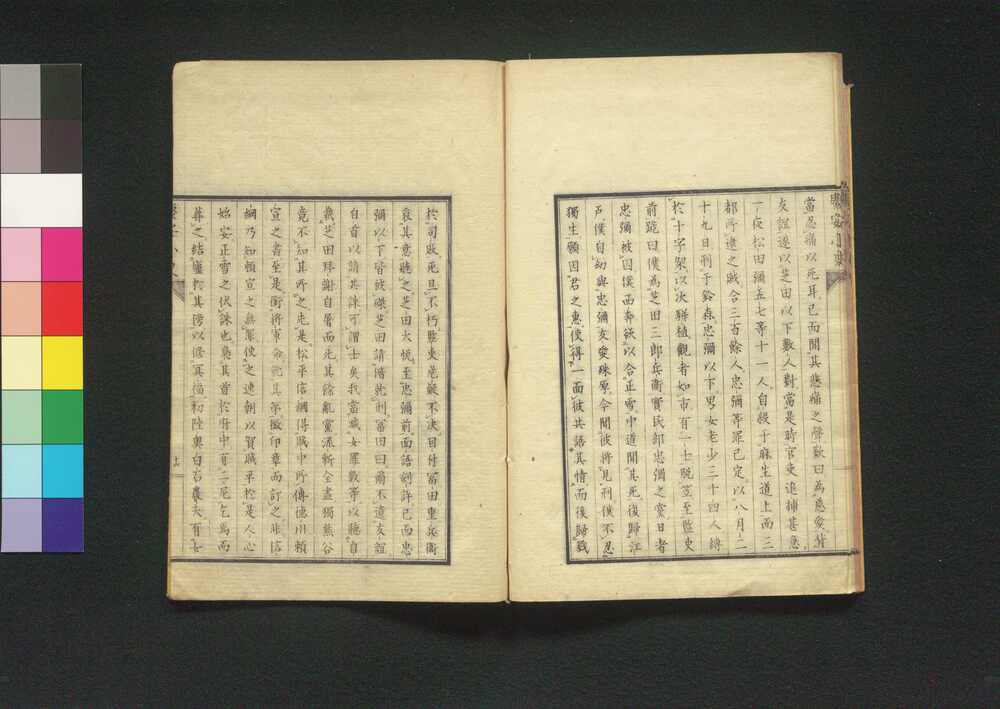 慶安小史
當忍痛以死耳已而聞其悲痛之聲歎曰爲慈愛對
友誼遂以芝田以下數人對當是時官吏追捕甚急
一夜松田彌五七等十一人自殺于麻生道上而三
都所逮之賊合三百餘人忠彌等罪已定以八月二
十九日刑于鈴森忠彌以下男女老少三十四人縛
於十字架以次駢植觀者如市有一士脱笠至監吏
前跪曰僕爲芝田三郎兵衛實民部忠彌之黨日者
忠彌被囚僕西奔欲以合正雪中道聞其死復歸江
戸僕自幼與忠彌友愛殊厚今聞彼將見刑僕不忍
獨生願因君之惠使得一面彼共語其情而後歸戮
於司敗死且不朽監吏危疑不決目付富田重兵衛
哀其意聽之芝田大悦至忠彌前面語刻許已而忠
彌以下皆被磔芝田請陪死刑富田曰爾不遺友誼
自首以請其誅可謂士矣我當滅女罪敢等以聽自
裁芝田拜謝自屠而死其餘亂黨流斬全盡獨熊谷
竟不知其所之先是松平信綱得賊中所傳德川賴
宣之書至是銜將軍命就其第徴印章而訂之非信
綱乃知賴宣之無罪使之速朝以賀賊平於是人心
始安正雪之伏誅也梟其首於府中有一尼乞爲而
葬之結廬於其傍以修冥福初陸奧白石農夫有玄